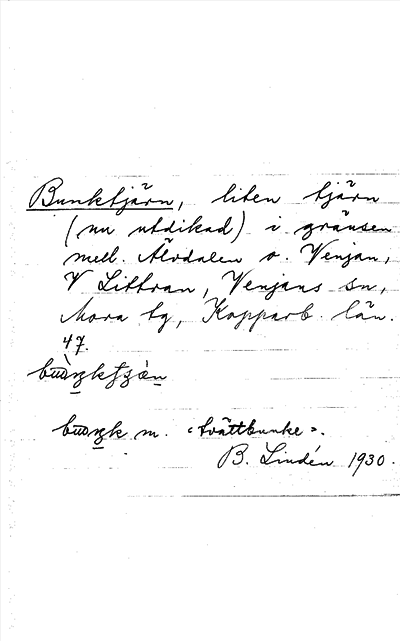 Bunktjärn, liten tjärn
(nu utdikad) i gränsen
mell. Älvdalen o. Venjan,
V Littran, Venjans sn,
Mora tg, Kopparb. län.
47.
bunk m. «tvättbunke».
B. Lindén 1930.